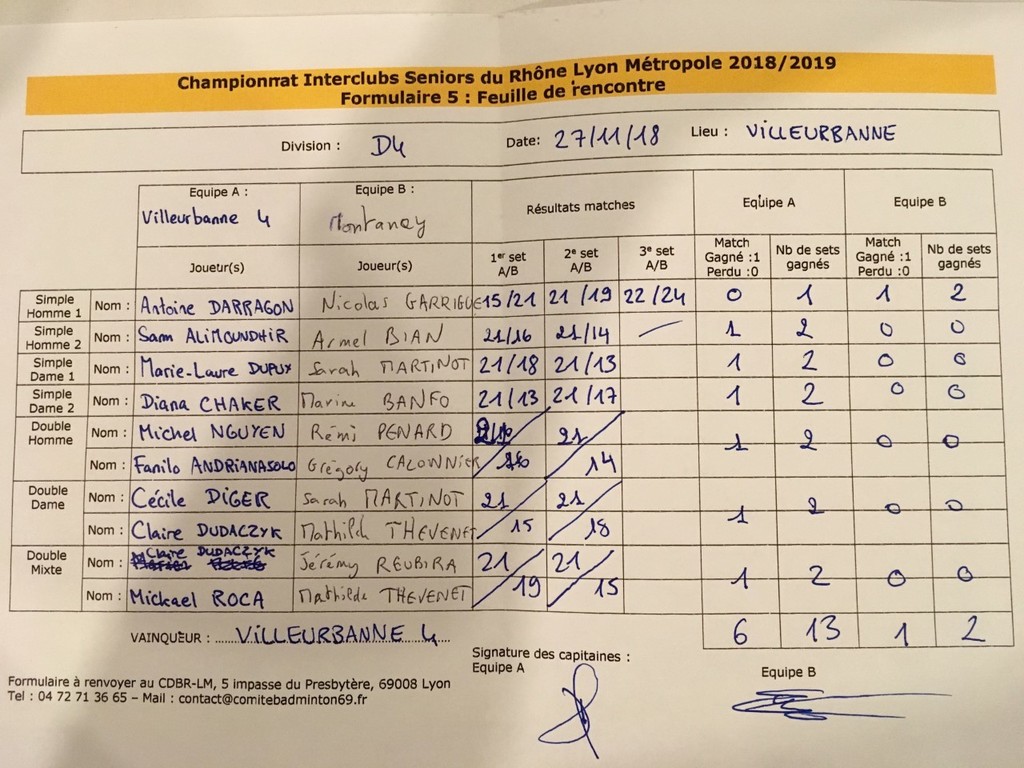 Championnat Interclubs Seniors du Rhône Lyon Métropole 2018/2019
Formulaire 5 : Feuille de rencontre
Division : D4 Date: 27/11/18 Lieu : VILLEURBANNE
Equipe A : Equipe B : Résultats matches Equipe A Equipe B
Villeurbanne 4 Montanay
Joueur(s) Joueur(s) 1er set A/B 2e set A/B 3e set A/B Match Gagné :1 Perdu :0 Nb de sets gagnés Match Gagné :1 Perdu :0 Nb de sets gagnés
Simple Homme 1 Nom : Antoine DARRAGON Nicolas GARRIGUE 15/21 21/19 22/24 0 1 1 2
Simple Homme 2 Nom : Sam ALIMOUNDHIR Armel BIAN 21/16 21/14 — 1 2 0 0
Simple Dame 1 Nom : Marie-Laure DUPUX Sarah MARTINOT 21/18 21/13 1 2 0 0
Simple Dame 2 Nom : Diana CHAKER Marine BANFO 21/13 21/17 1 2 0 0
Double Homme Nom : Michel NGUYEN Rémi PENARD 21 1 2 0 0
Nom : Fanilo ANDRIANASOLO Grégory CALONNIER 14
Double Dame Nom : Cécile DIGER Sarah MARTINOT 21 21 1 2 0 0
Nom : Claire DUDACZYK Mathilde THEVENET 15 18
Double Mixte Nom : Claire DUDACZYK Jérémy REUBIRA 21 21 1 2 0 0
Nom : Mickael ROCA Mathilde THEVENET 19 15
VAINQUEUR : VILLEURBANNE 4 6 13 1 2
Signature des capitaines :
Equipe A Equipe B
Formulaire à renvoyer au CDBR-LM, 5 impasse du Presbytère, 69008 Lyon
Tel : 04 72 71 36 65 – Mail : contact@comitebadminton69.fr